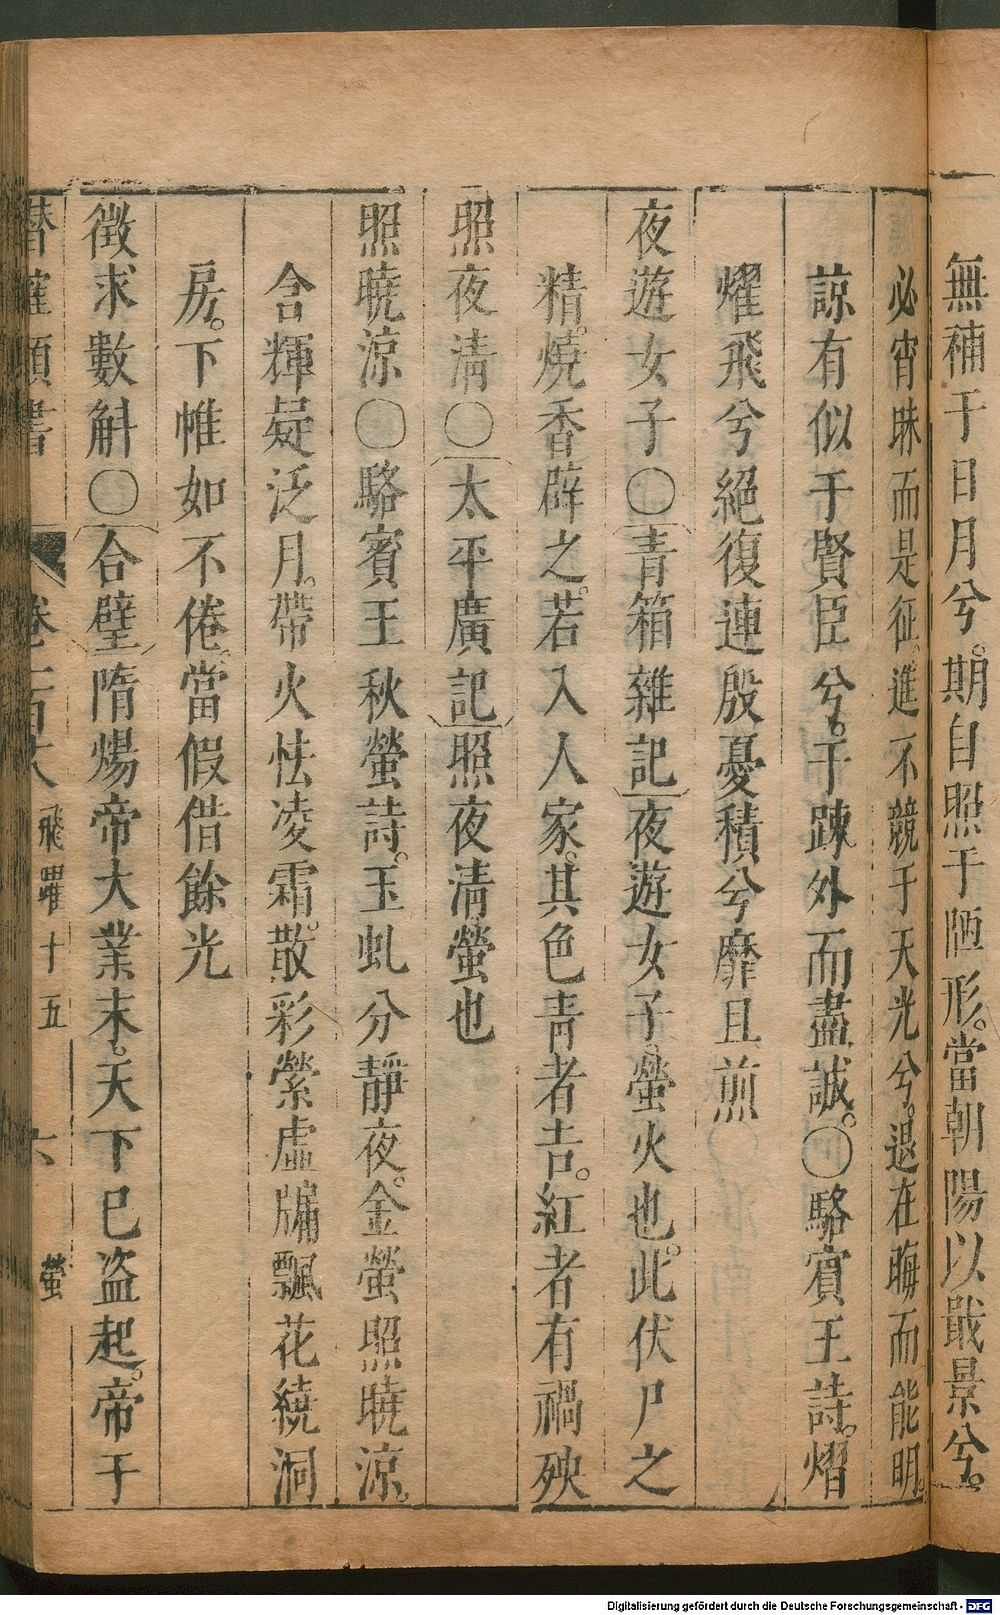 無補于日月兮。期自照于陋形。當朝陽以戢景兮。
必宵昧而是征。進不競于天光兮。退在晦而能明。
諒有似于賢臣兮。于踈外而盡誠。〇駱賓王詩。熠
燿飛兮絕復連殷憂積兮靡且煎
夜遊女子〇青箱雜記夜遊女子。螢火也。此伏尸之
精。燒香辟之。若入人家。其色青者吉。紅者有禍殃
照夜清〇太平廣記照夜清螢也
照曉涼〇駱賓王秋螢詩。玉虬分靜夜。金螢照曉涼。
含輝疑泛月。帶火怯凌霜。散彩縈虛牖飄花繞洞
房。下帷如不倦。當假借餘光
徵求數斛〇合璧隋煬帝大業末。天下已盜起。帝于
潛確類書 卷一百十八 飛躍十五 六 螢
Digitalisierung gefördert durch die Deutsche Forschungsgemeinschaft - DFG